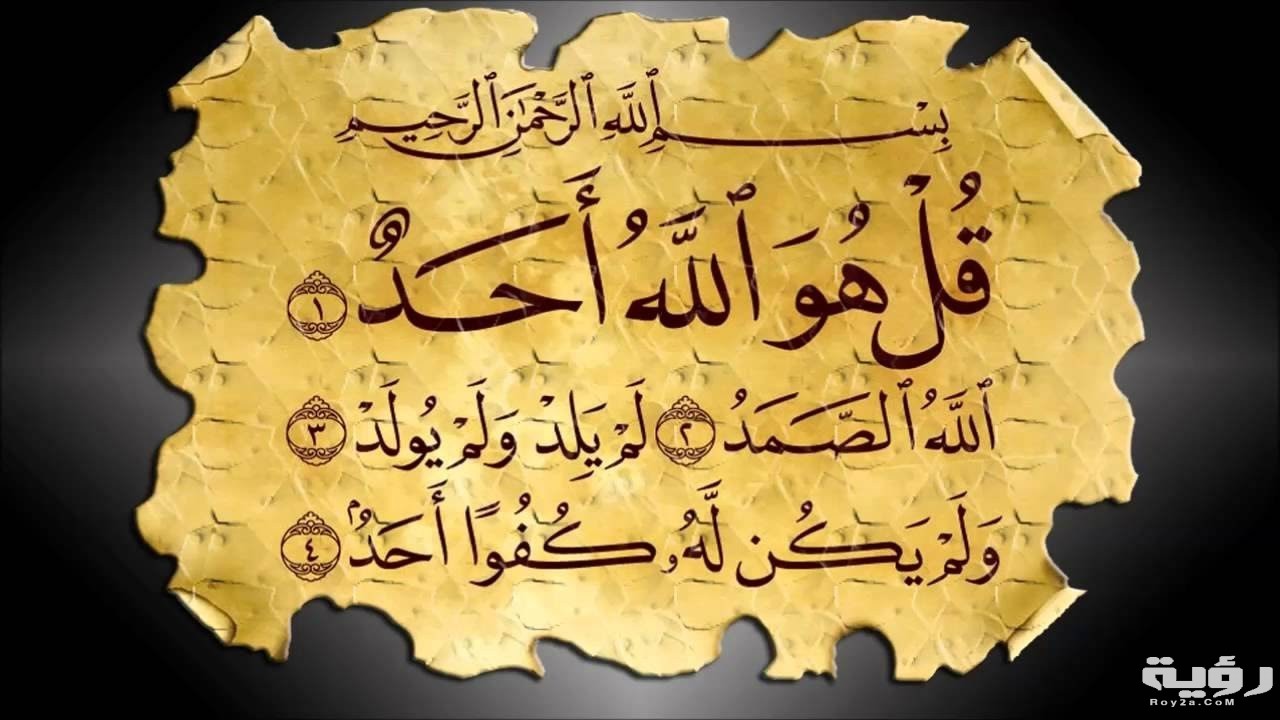 بِسْمِ ٱللَّهِ ٱلرَّحْمَٰنِ ٱلرَّحِيمِ
قُلْ هُوَ ٱللَّهُ أَحَدٌ ١
ٱللَّهُ ٱلصَّمَدُ ٢ لَمْ يَلِدْ وَلَمْ يُولَدْ ٣
وَلَمْ يَكُن لَّهُۥ كُفُوًا أَحَدُۢ ٤
رؤية
Roy2a.CoM